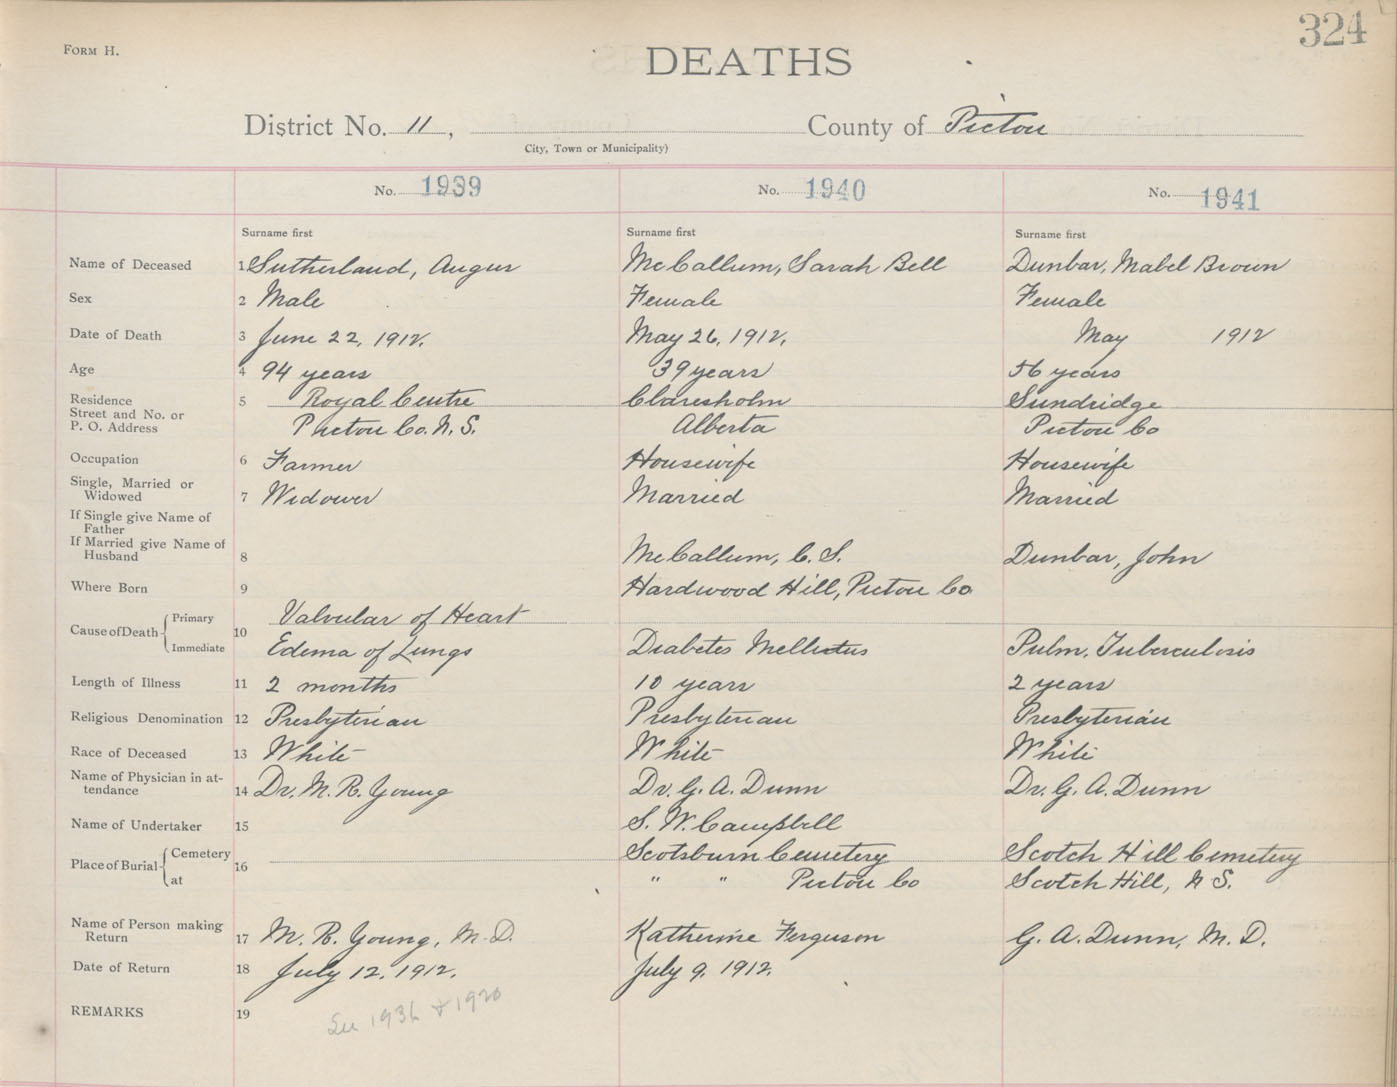 324
FORM H.
DEATHS
District No. 11, County of Pictou
City, Town or Municipality)
No. 1939 No. 1940 No. 1941
Surname first Surname first Surname first
Name of Deceased 1 Sutherland, Angus McCallum, Sarah Bell Dunbar, Mabel Brown
Sex 2 Male Female Female
Date of Death 3 June 22, 1912. May 26, 1912. May 1912
Age 4 94 years 39 years 56 years
Residence 5 Royal Centre Claresholm Sundridge
Street and No. or
P. O. Address Pictou Co. N. S. Alberta Pictou Co
Occupation 6 Farmer Housewife Housewife
Single, Married or
Widowed 7 Widower Married Married
If Single give Name of
Father
If Married give Name of
Husband 8 McCallum, C. S. Dunbar, John
Where Born 9 Hardwood Hill, Pictou Co.
Cause of Death Primary 10 Valvular of Heart
Immediate Edema of Lungs Diabetes Mellitus Pulm. Tuberculosis
Length of Illness 11 2 months 10 years 2 years
Religious Denomination 12 Presbyterian Presbyterian Presbyterian
Race of Deceased 13 White White White
Name of Physician in at-
tendance 14 Dr. M. R. Young Dr. G. A. Dunn Dr. G. A. Dunn
Name of Undertaker 15 S. W. Campbell
Place of Burial Cemetery 16 Scotsburn Cemetery Scotch Hill Cemetery
at " " Pictou Co Scotch Hill, N S.
Name of Person making
Return 17 M. R. Young, M. D. Katherine Ferguson G. A. Dunn, M. D.
Date of Return 18 July 12, 1912. July 9, 1912.
REMARKS 19 See 1936 & 1920